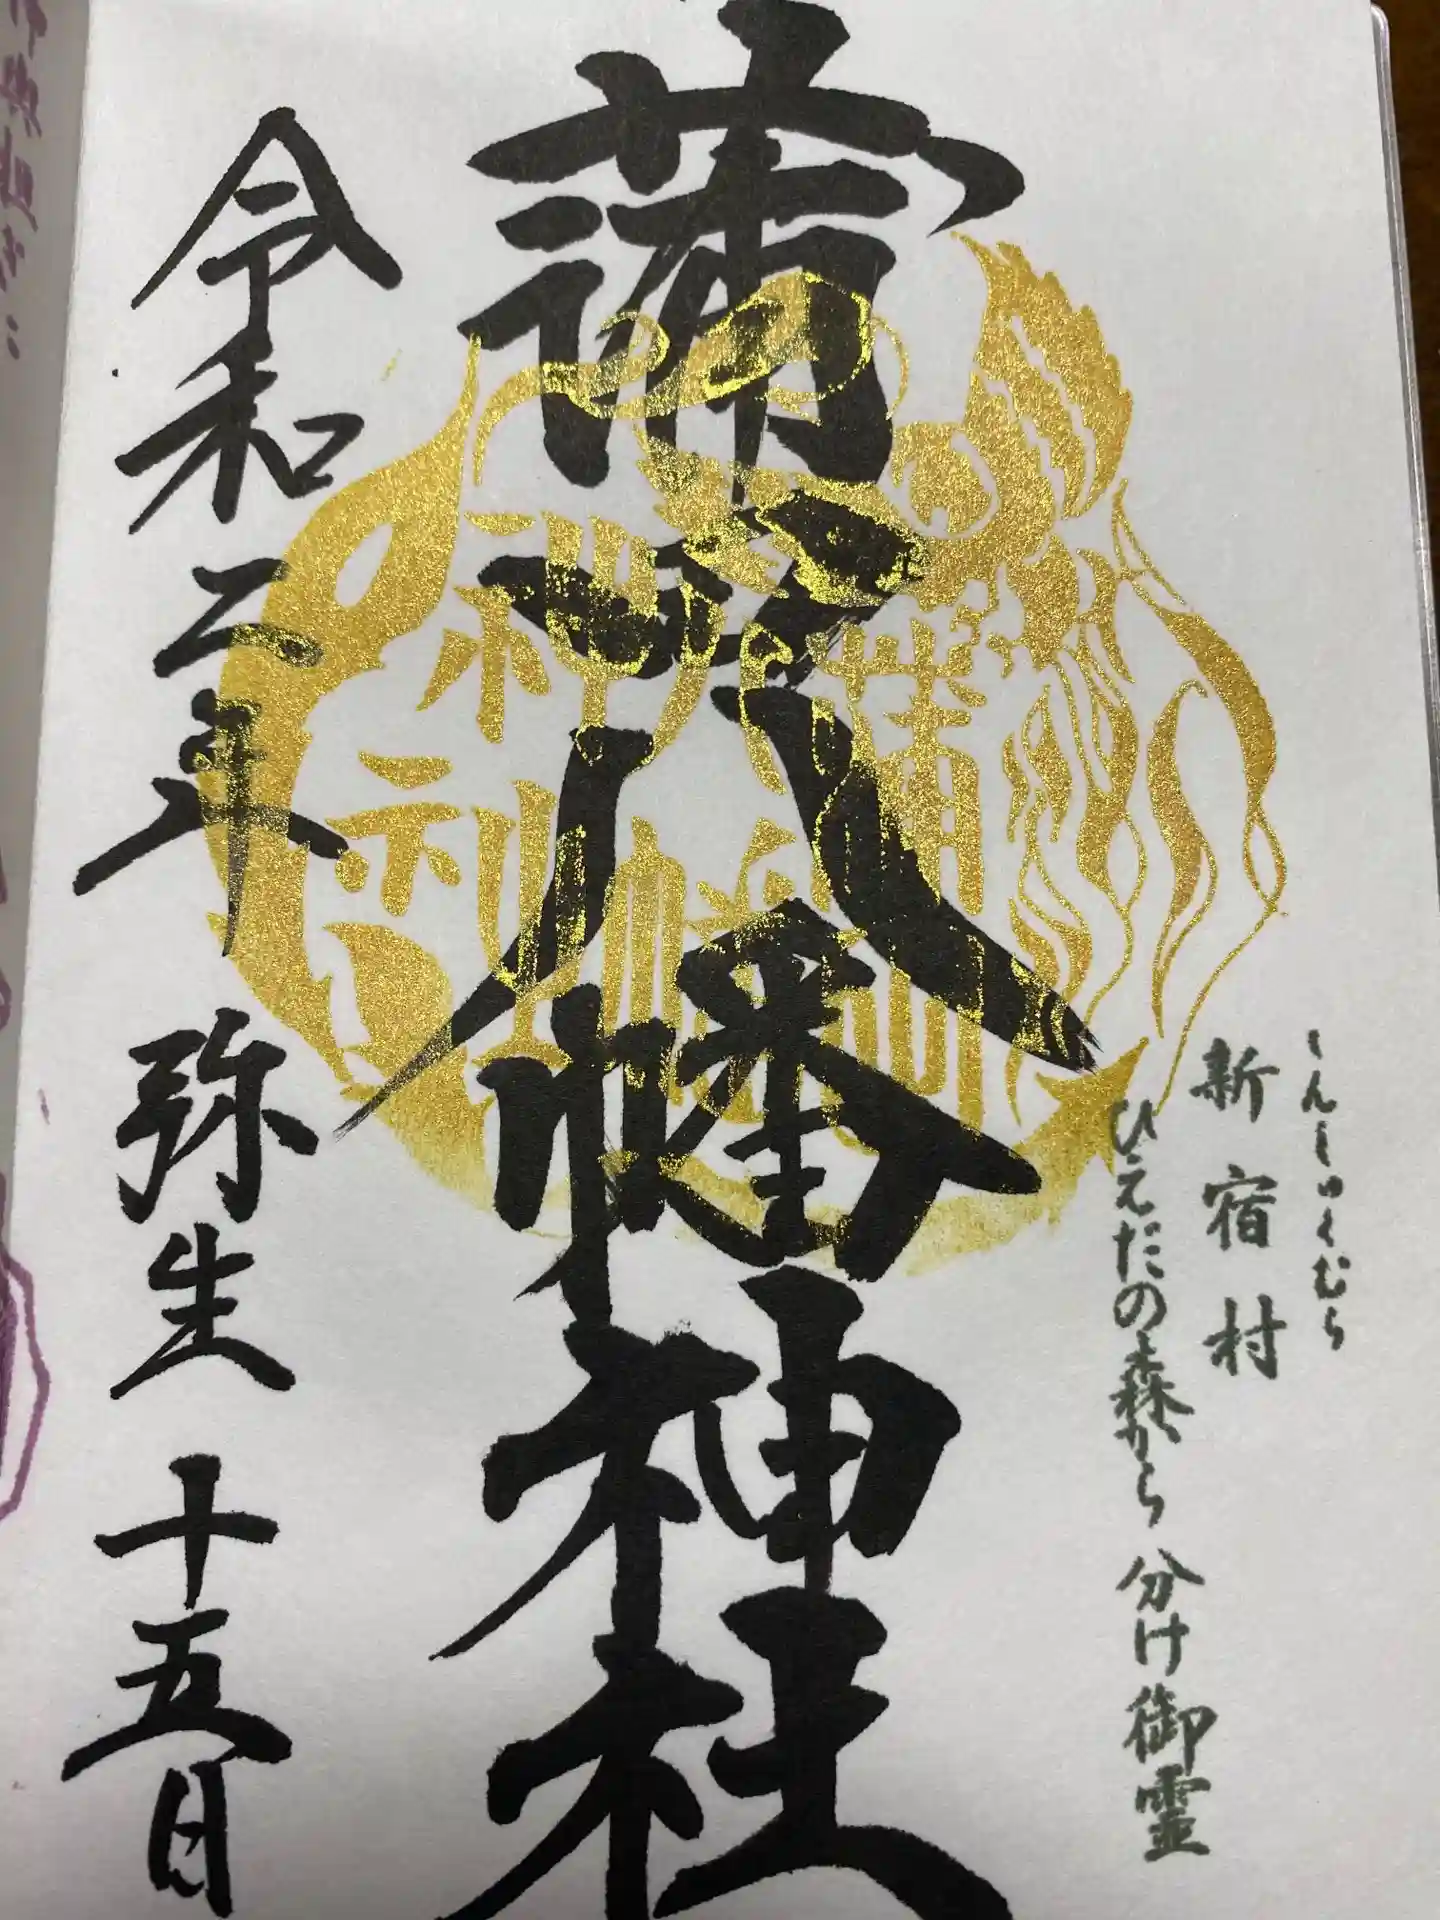 しんしゅくむら
新宿村
ひえだの森から 分け御霊
蒲田八幡神社
蒲田
八幡
神社
令和二年 弥生 十五日